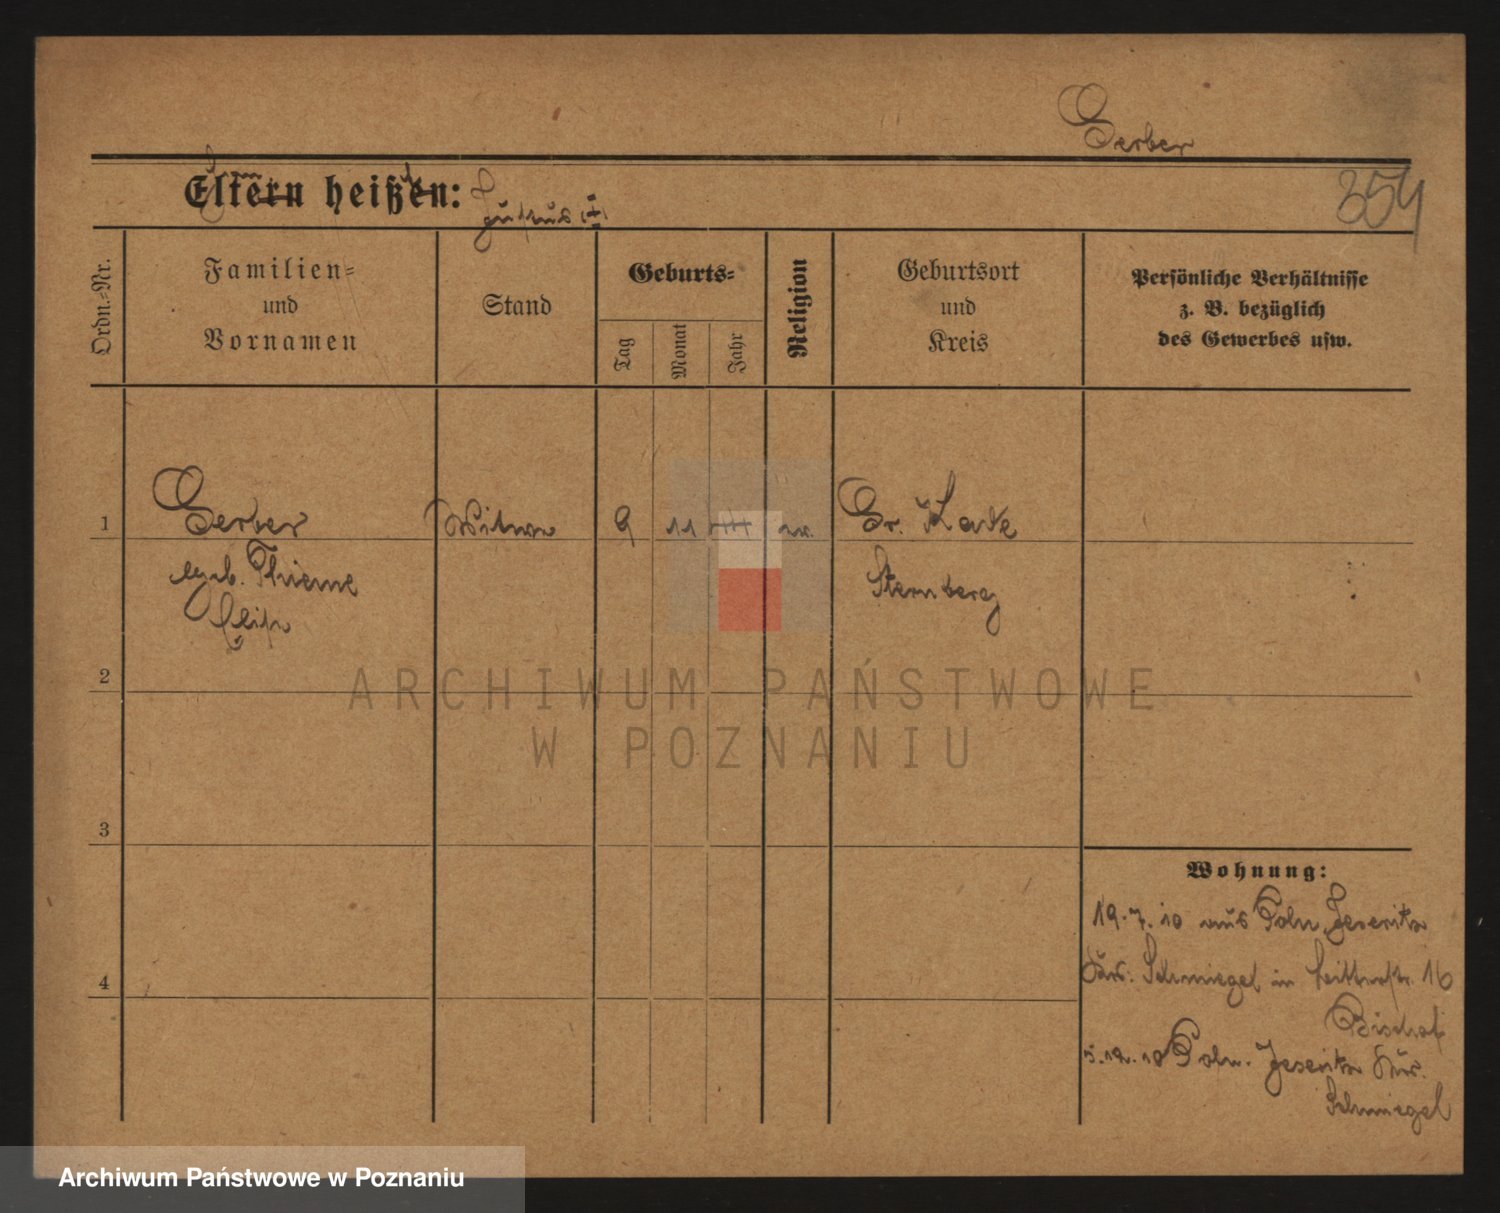 Gerber
354
Eltern heißen:
Ordn.-Nr.
Familien-
und
Vornamen
Stand
Geburts-
Tag
Monat
Jahr
Religion
Geburtsort
und
Kreis
Persönliche Verhältnisse
z. B. bezüglich
des Gewerbes usw.
1
Gerber
Witwe
9
11
ev.
Gr.
geb. Thieme
Sternberg
2
ARCHIWUM PAŃSTWOWE
W POZNANIU
3
Wohnung:
19.7.10 aus Poln. Jeseritz
Krs. Schmiegel in 16
4
Bischof
5.12.10 Poln. Jeseritz Krs.
Schmiegel
Archiwum Państwowe w Poznaniu